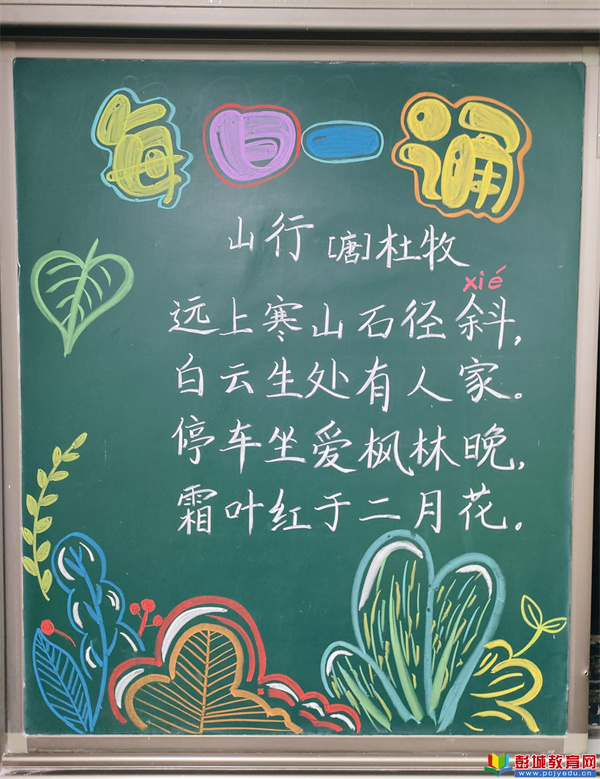 每日一诵
山行 [唐]杜牧
xié
远上寒山石径斜，
白云生处有人家。
停车坐爱枫林晚，
霜叶红于二月花。
彭城教育网
www.pcjyedu.cn